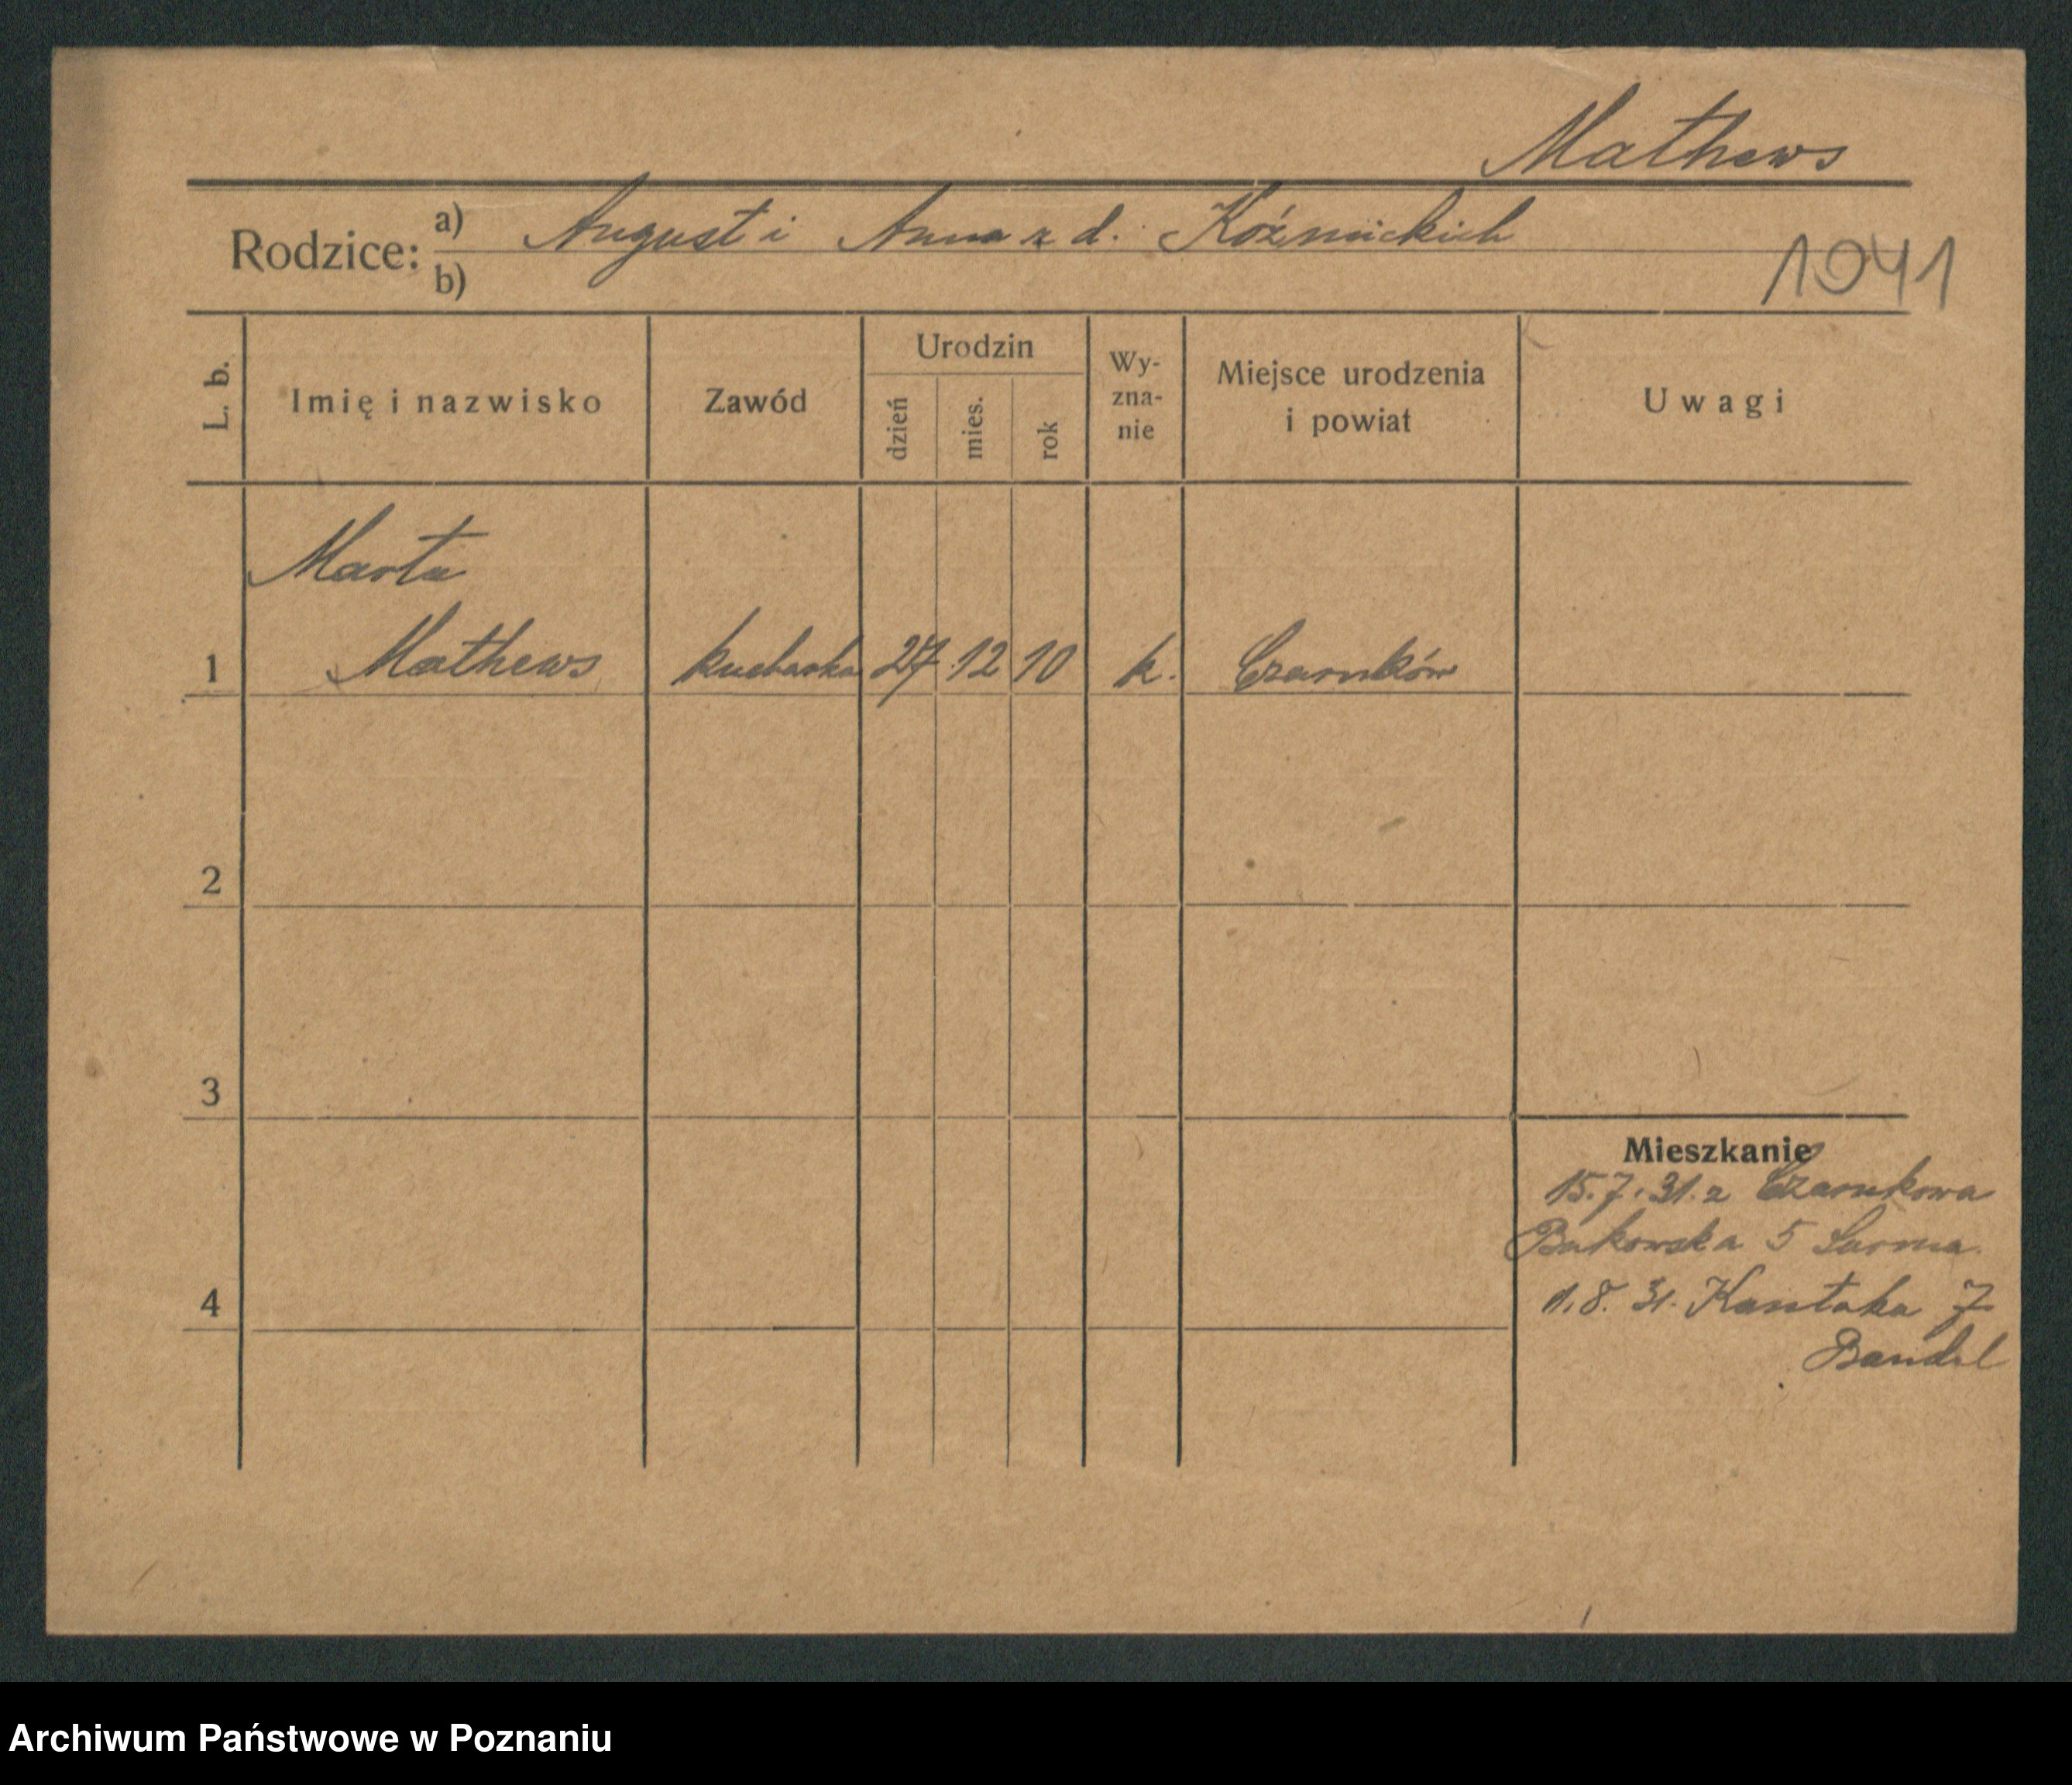 Mathews
Rodzice: a) August i Anna z d. Koźmickich
b)
1041
L. b.
Imię i nazwisko
Zawód
Urodzin
dzień
mies.
rok
Wy-
zna-
nie
Miejsce urodzenia
i powiat
Uwagi
Marta
1 Mathews kucharka 27 12 10 k. Czarnków
2
3
4
Mieszkanie
15.7.31. z Czarnkowa
Bukowska 5 Surma.
1.8.31. Kantaka 7
Bandel
Archiwum Państwowe w Poznaniu